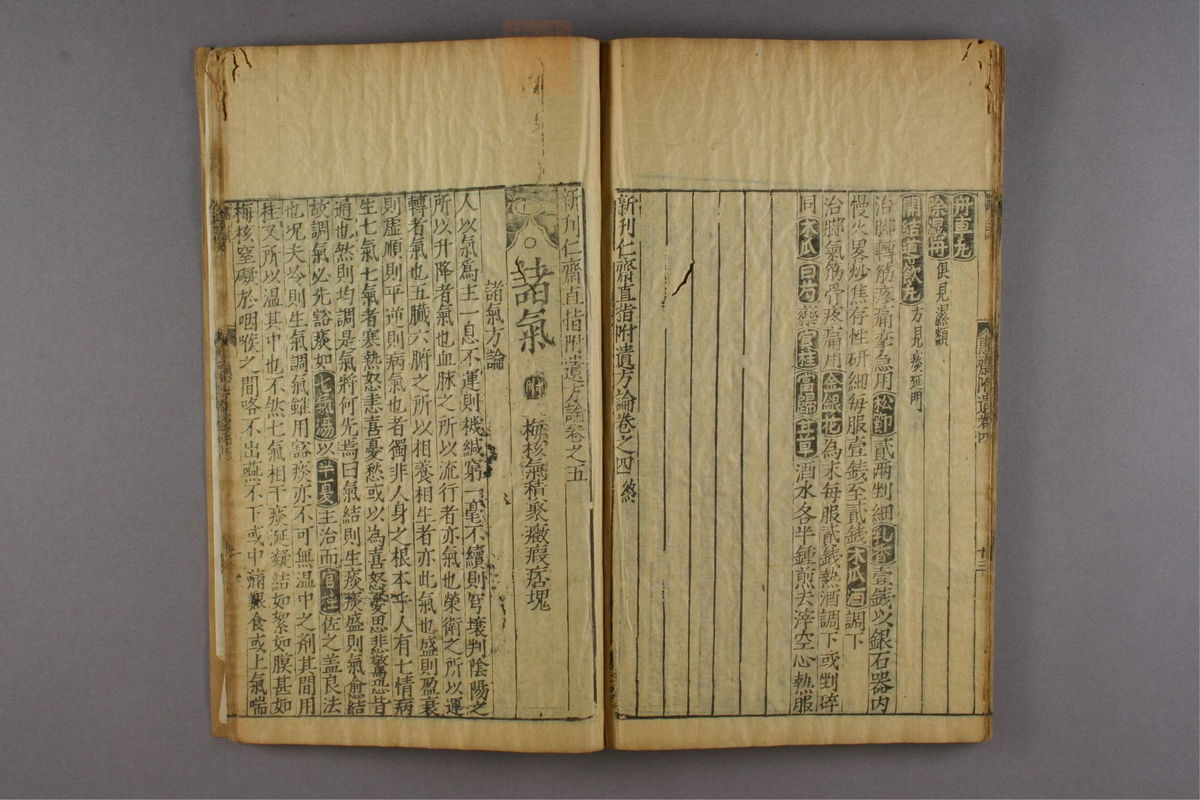 舟車丸
除濕丹 俱見濕類
開結導飲丸 方見痰延門
治脚轉筋疼痛攣急用松節貳两剉細乳香壹錢以銀石器内
慢火畧炒焦存性研細每服壹錢至貳錢木瓜酒調下
治脚氣筋骨疼痛用金銀花為末每服貳錢熱酒調下或剉碎
同木瓜白芍藥官桂當歸甘草酒水各半鍾煎去滓空心熱服
新刊仁齋直指附遺方論卷之四終
新刊仁齋直指附遺方論卷之五
諸氣 附 梅核氣積聚癥瘕痞塊
諸氣方論
人以氣爲主一息不運則機緘窮一毫不續則穹壤判陰陽之
所以升降者氣也血脉之所以流行者亦氣也榮衛之所以運
轉者氣也五臟六腑之所以相養相生者亦此氣也盛則盈衰
則虛順則平逆則病氣也者獨非人身之根本乎人有七情病
生七氣七氣者寒熱怒恚喜憂愁或以為喜怒憂思悲驚恐皆
通也然則均調是氣將何先焉曰氣結則生痰痰盛則氣愈結
故調氣必先豁痰如七氣湯以半夏主治而官桂佐之盖良法
也况夫冷則生氣調氣雖用豁痰亦不可無温中之剤其間用
桂又所以温其中也不然七氣相干痰涎凝結如絮如膜甚如
梅核窒礙於咽喉之間咯不出嚥不下或中滿艱食或上氣喘